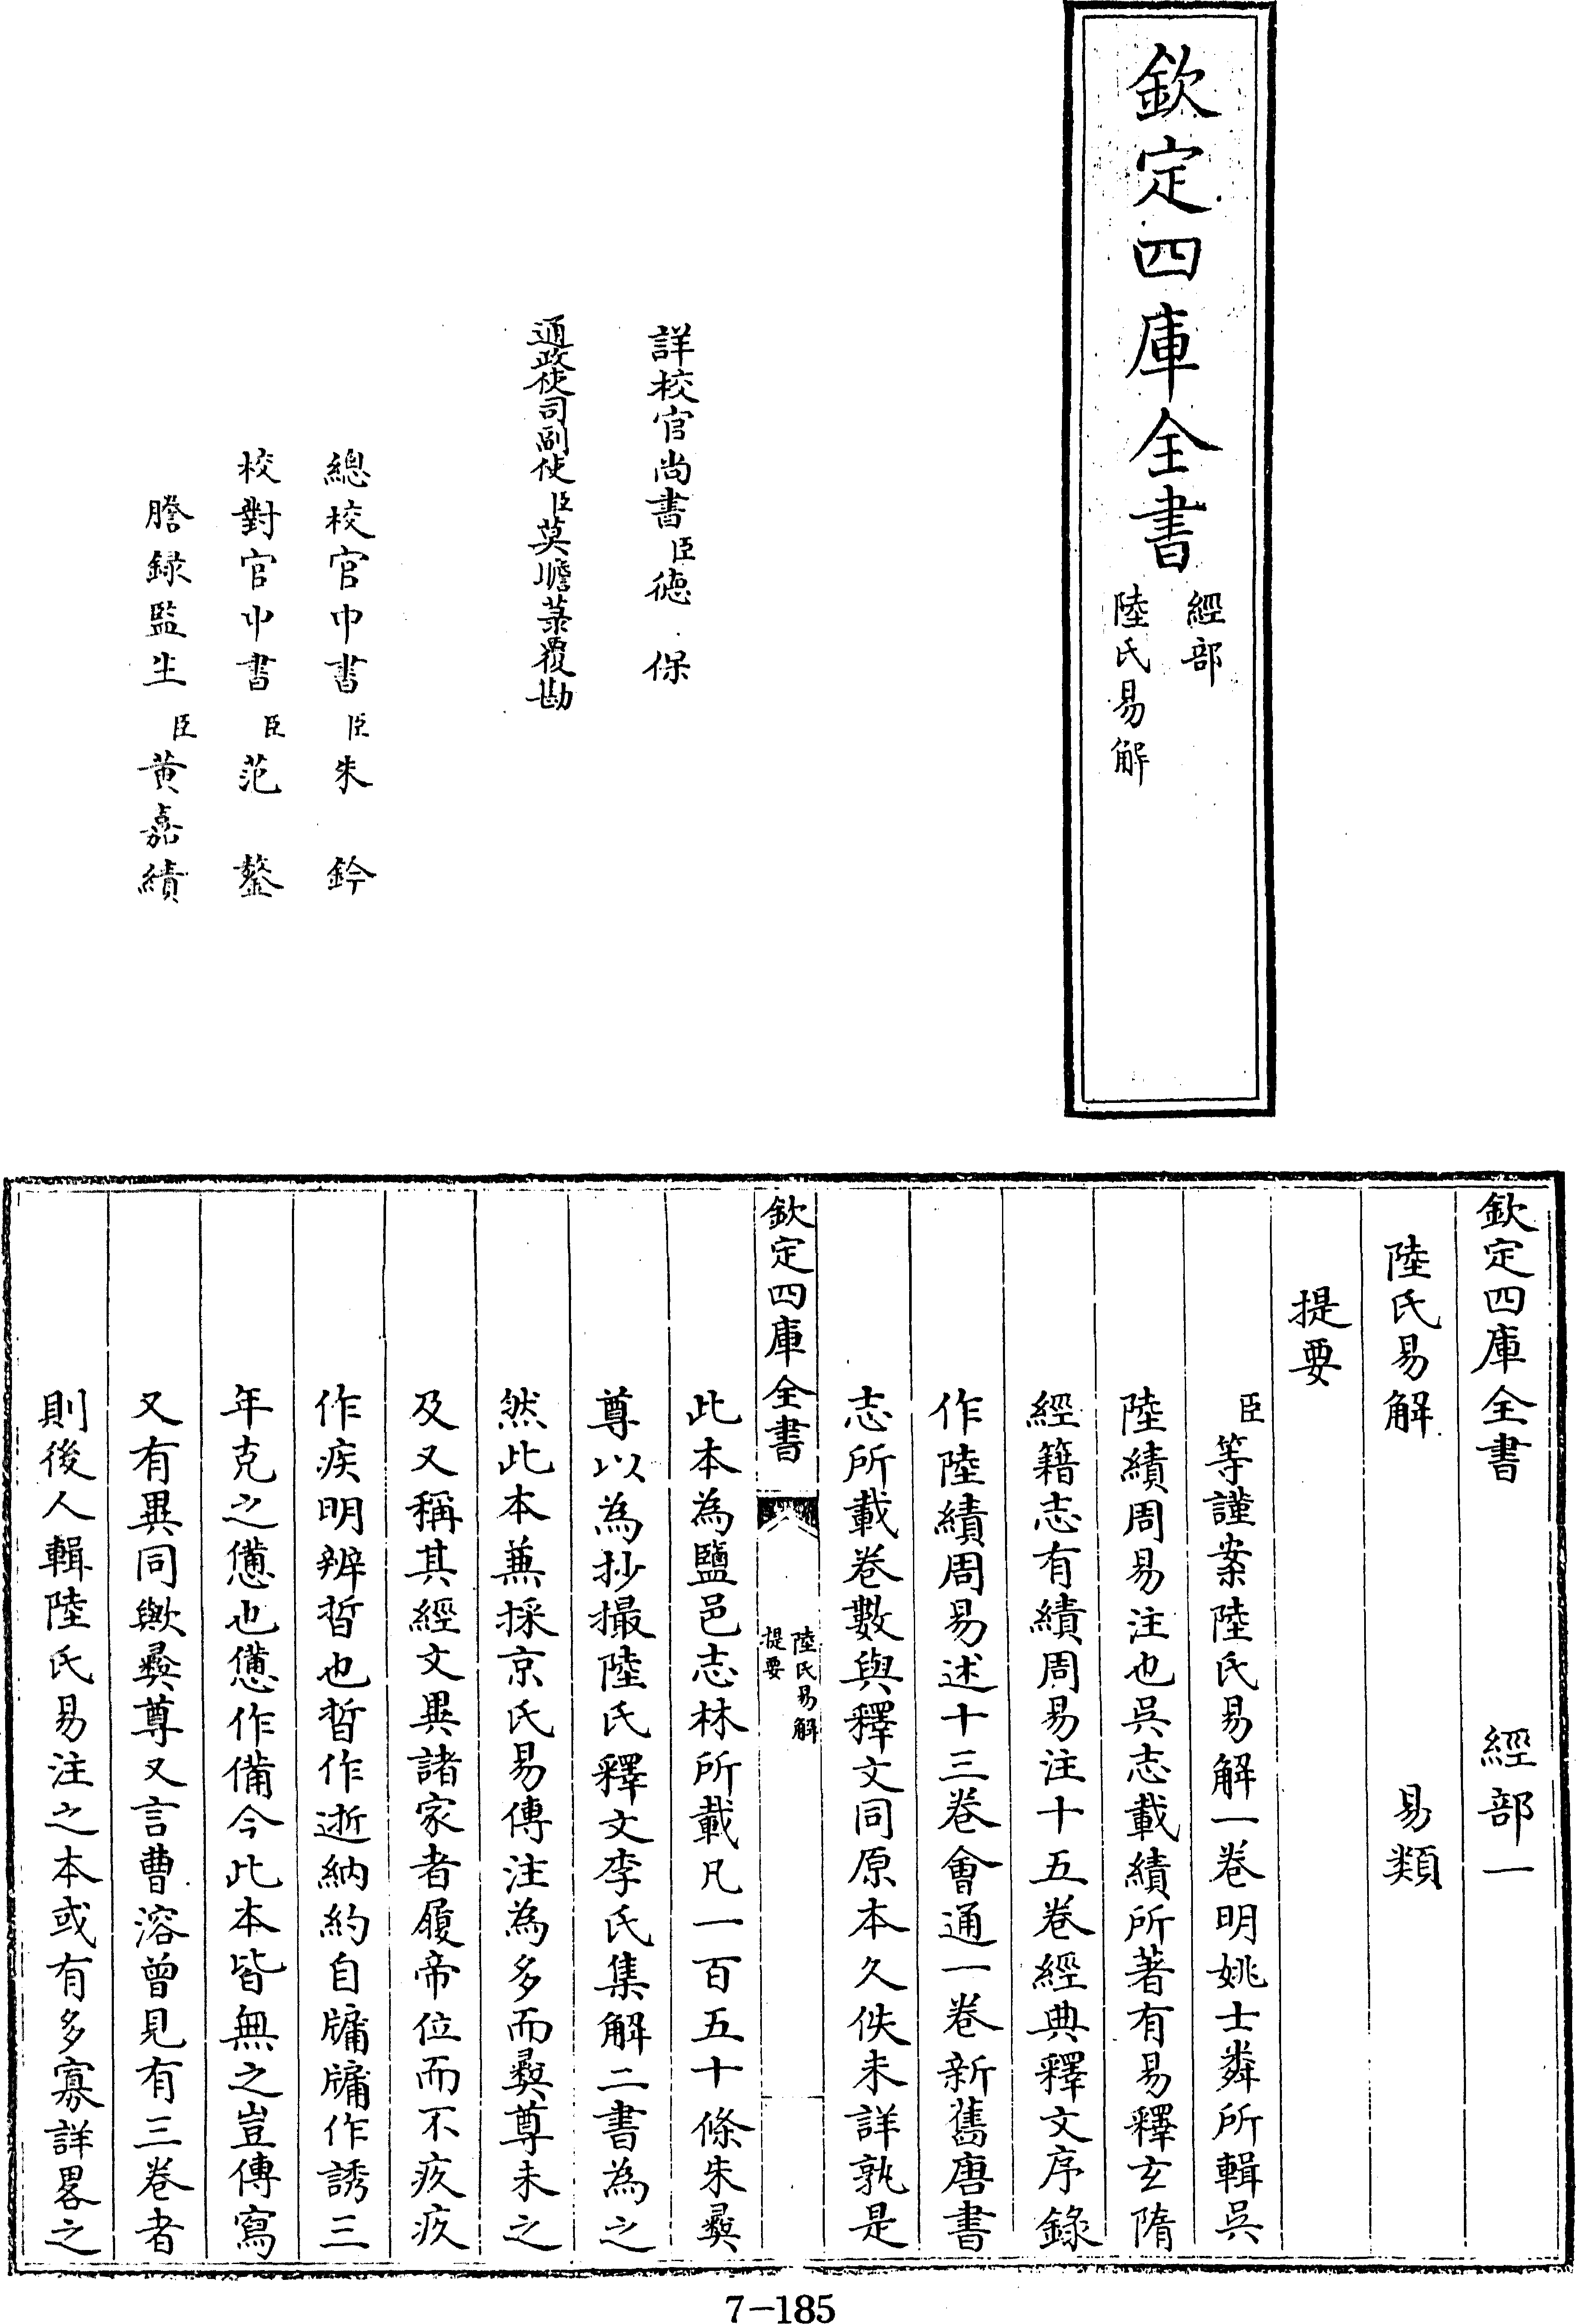 欽定四庫全書
經部
陸氏易解
詳校官尚書臣德保
通政使司副使臣莫瞻菉覆勘
總校官中書臣朱鈐
校對官中書臣范鏊
謄録監生臣黄嘉績
欽定四庫全書 經部一
陸氏易解 易類
提要
臣等謹案陸氏易解一卷明姚士粦所輯吳
陸績周易注也吳志載績所著有易釋玄隋
經籍志有績周易注十五卷經典釋文序錄
作陸績周易述十三卷會通一卷新舊唐書
志所載卷數與釋文同原本久佚未詳孰是
欽定四庫全書
陸氏易解
提要
此本為鹽邑志林所載凡一百五十條朱彝
尊以為抄撮陸氏釋文李氏集解二書為之
然此本兼採京氏易傳注為多而彝尊未之
及又稱其經文異諸家者履帝位而不疚疚
作疾明辨晢也晢作逝納約自牖牖作誘三
年克之憊也憊作備今此本皆無之豈傳寫
又有異同歟彝尊又言曹溶曾見有三卷者
則後人輯陸氏易注之本或有多寡詳畧之
7-185